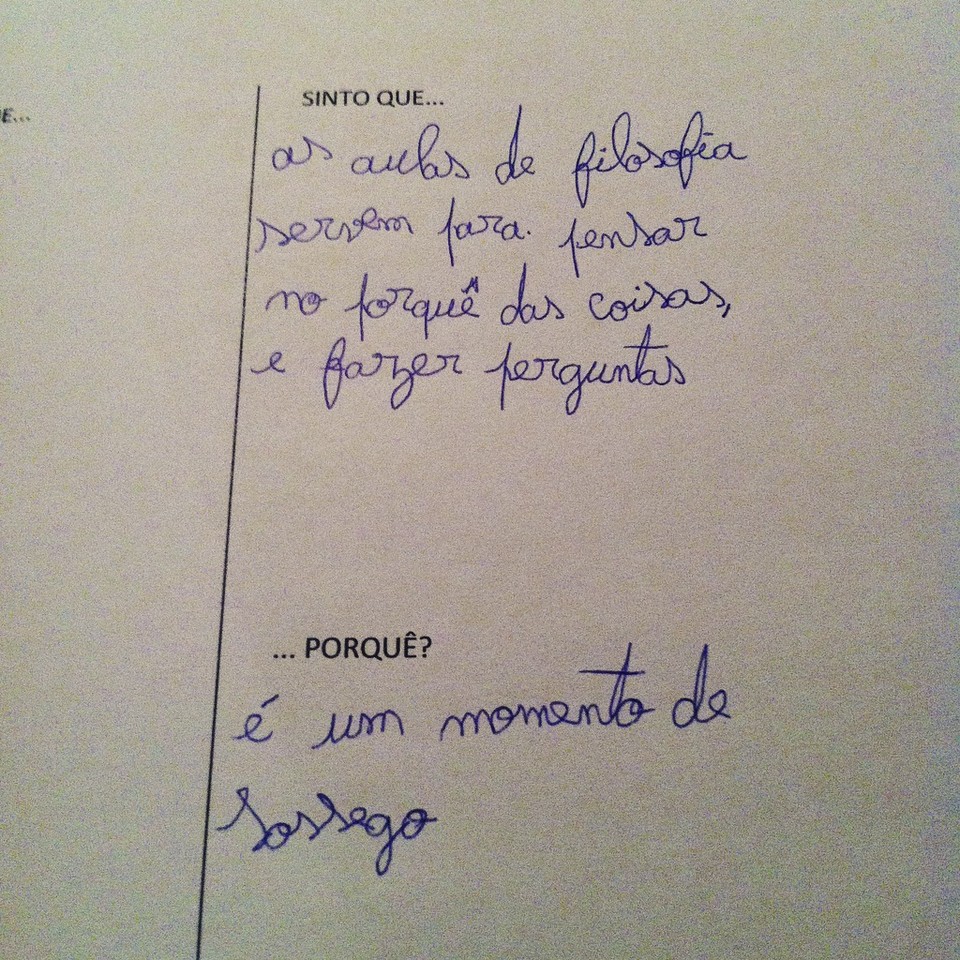 E...
SINTO QUE...
as aulas de filosofia
servem para. pensar
no porquê das coisas,
e fazer perguntas
... PORQUÊ?
é um momento de
sossego